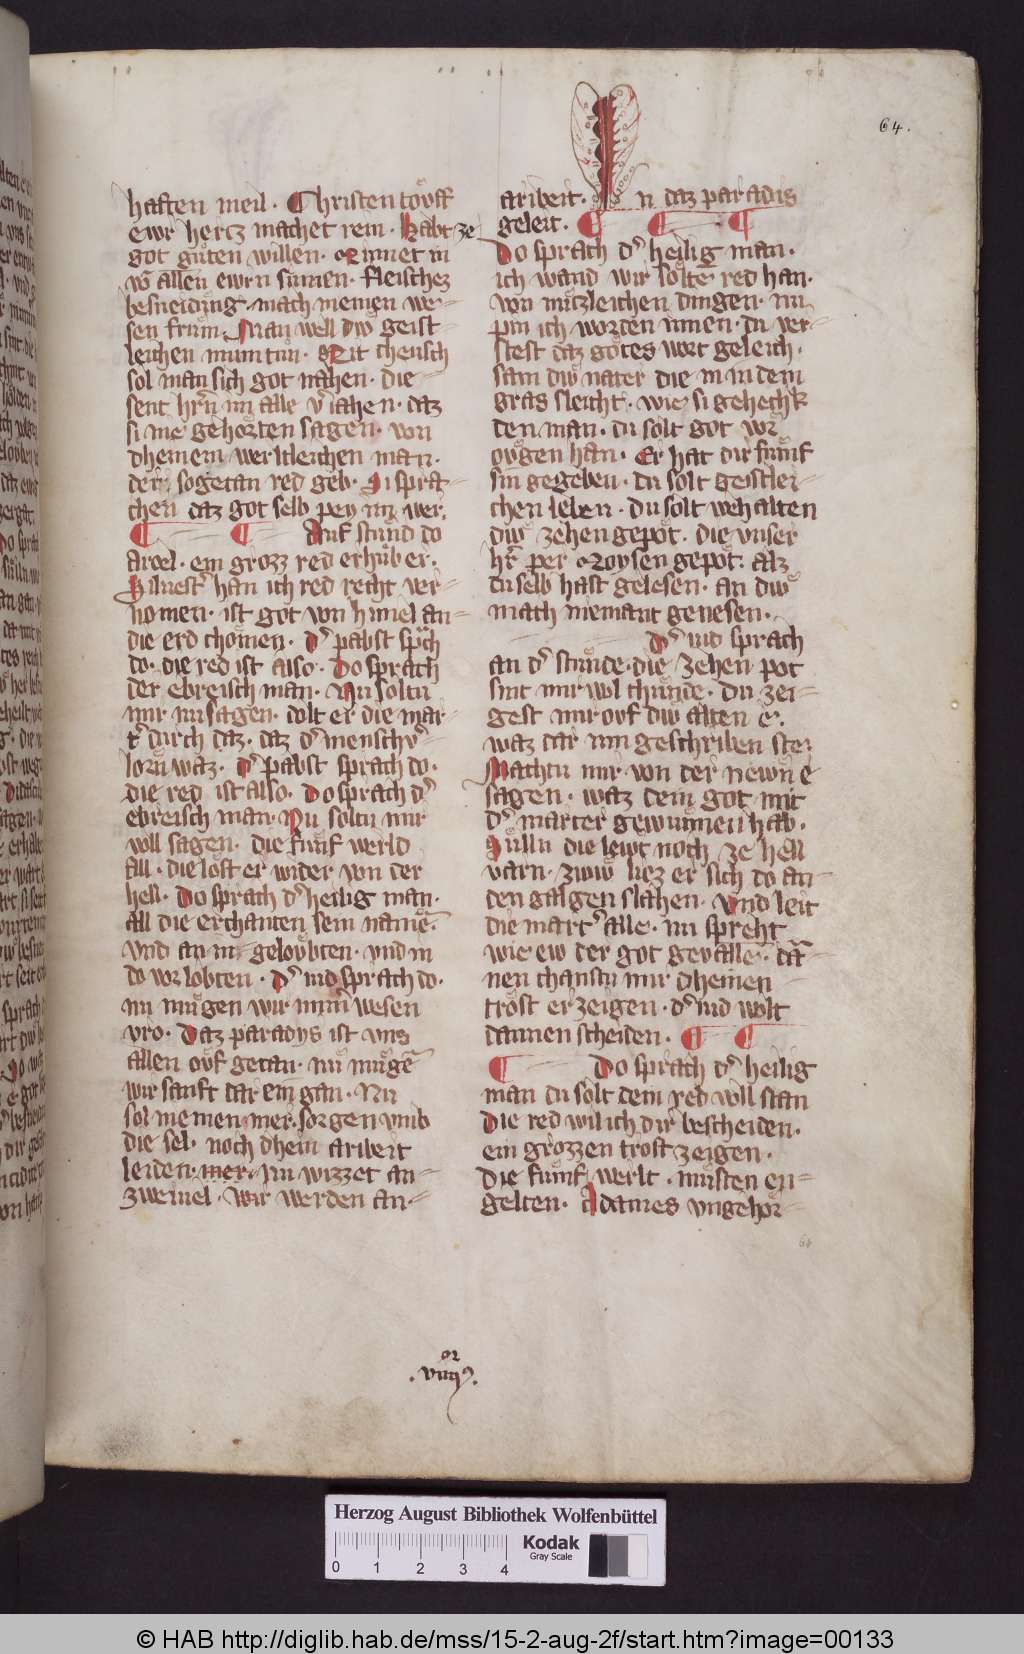 64.
haften meil. Christen toͮff
ewr hertz machet rein. Habt ze
got guͤten willen. Rinnet in
vō allen ewrn sunnen. fleischez
besneidung. mach meinen we-
sen frum. Man well diw geist-
leichen mumtun. Mit cheusch
sol man sich got nahen. die-
sent hr̄n im alle v̓iahen. daz
si nie gehorten sagen. von
dheinem werltleichen man.
der sogetan red geb. Si spra-
chen daz got selb pey im wer.
Auf stund do
aroel. ein grozz red erhub er.
Siluest̓ han ich red recht ver-
nomen. ist got von himel an-
die erd chomen. d̓ pabst sprach
do. die red ist also. Do sprach
der ebreisch man. Nu soltu
mir nu sagen. dolt er die mar-
t̓ durch daz. daz d̓ mensch v̓-
lorn waz. d̓ pabst sprach do.
die red ist also. Do sprach d̓
ebreisch man. Nu soltu mir
woll sagen. die funf werld
all. die lost er wider von der
hell. Do sprach d̓ heilig man.
all die erchanten sein namē.
vnd an in geloͮbten. vnd in
do vor lobten. d̓ iud sprach do.
nu mugen wir imm̓ wesen
vro. Daz paradys ist vns
allen oͮf getan. nu mugē
wir sanft dar ein gan. Nu
sol niemen mer sorgen vmb
die sel. noch dhein aribeit
leiden. mer. Nu wizzet an-
zweiuel. wir werden an-
aribeit. In daz paradis
geleit.
Do sprach d̓ heilig man.
ich wand wir solte red han.
von nutzleichen dingen. nu
pin ich worden innen. du ver-
stest daz gotes wort geleich.
sam diw nater die in in dem
gras sleicht. wie si gehechk
den man. du solt got vor
oͮgen han. Er hat dir funf
sin gegeben. du solt geistlei-
chen leben. Du solt weh alten
diw zehen gepot. die vnser
hr̄ per Moysen gepot. alz
du selb hast gelesen. an diw
mach niemant genesen.
d̓ iud sprach
an d̓ stunde. die zehen pot
sint mir wol chunde. du zei-
gest mir oͮf diw alten e.
waz dar inn geschriben ste.
Machtu mir von der newn e
sagen. waz dein got mit
d̓ marter gewunnen hab.
Sulln die lewt noch ze hell
varn. zwiw liez er sich do an-
den galgen slahen. Vnd leit
die mart̓ alle. nu sprecht
wie ew der got gevalle. dā-
nen chanstu mir dheinen
trost erzeigen. d̓ iud wolt
dannen scheiden.
Do sprach d̓ heilig
man du solt dein red woll stan
Die red wil ich dir bescheiden.
ein grozzen trost zeigen.
Die funf werlt. musten en-
gelten. Adames vngehor-
64
.viiij9.
Herzog August Bibliothek Wolfenbüttel
0 1 2 3 4
Kodak
Gray Scale
© HAB http://diglib.hab.de/mss/15-2-aug-2f/start.htm?image=00133